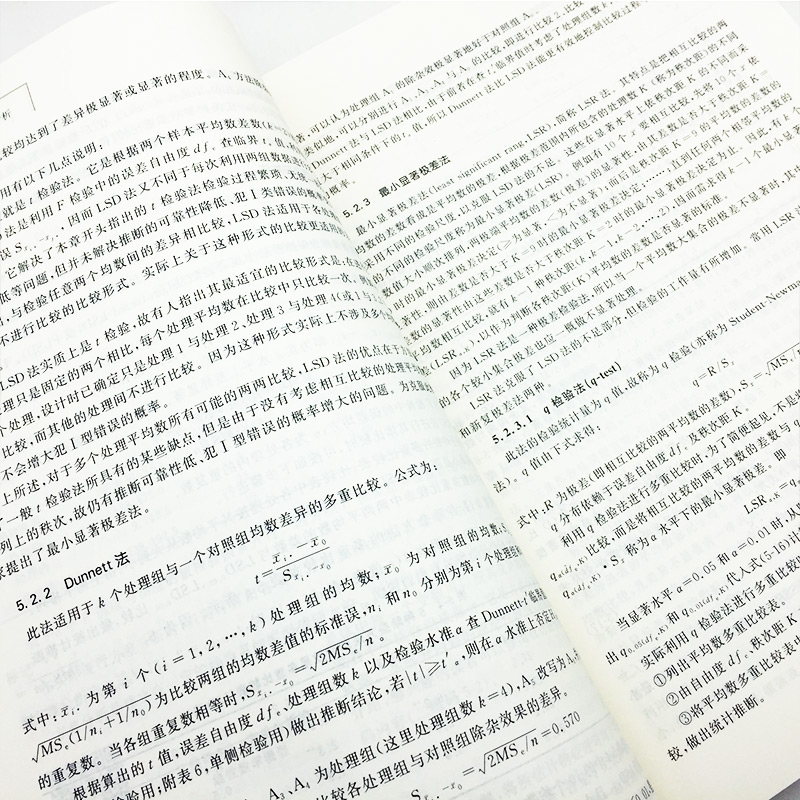 析
比较均达到了差异极显著或显著的程度。A
用有以下几点说明:
就是 t 检验法。它是根据两个样本平均数差数(
法是利用 F 检验中的误差自由度 dfₑ 查临界 t
误 S
,因而 LSD 法又不同于每次利用两组数据
它解决了本章开头指出的 t 检验法检验过程繁琐
低等问题,但并未解决推断的可靠性降低、犯Ⅰ类错误的概率
,与检验任意两个均数间的差异相比较,LSD 法适用于各处
不进行比较的比较形式。实际上关于这种形式的比较更适用
LSD 法实质上是 t 检验,故有人指出其最适宜的比较形式是:在
理只是固定的两个相比,每个处理平均数在比较中只比较一次。例如
个处理,设计时已确定只是处理 1 与处理 2、处理 3 与处理 4(或 1 与
比较,而其他的处理间不进行比较。因为这种形式实际上不涉及多个
不会增大犯Ⅰ型错误的概率。
上所述,对于多个处理平均数所有可能的两两比较,LSD 法的优点在于
了一般 t 检验法所具有的某些缺点,但是由于没有考虑相互比较的处理平
列上的秩次,故仍有推断可靠性低、犯Ⅰ型错误的概率增大的问题。为克服
家提出了最小显著极差法。
5.2.2 Dunnett 法
此法适用于 k 个处理组与一个对照组均数差异的多重比较。公式为:
t=(x̄ᵢ.−x̄₀)/S
式中:x̄ᵢ. 为第 i 个(i=1,2,…,k)处理组的均数;x̄₀ 为对照组的均数;
√MSₑ(1/nᵢ+1/n₀)为比较两组的均数差值的标准误,nᵢ 和 n₀ 分别为第 i 个处理组
的重复数。当各组重复数相等时,S =√2MSₑ/n。
根据算出的 t 值,误差自由度 dfₑ、处理组数 k 以及检验水准 α 查 Dunnett-t 临界
检验用;附表 6,单侧检验用)做出推断结论,若|t|≥t′α,则在 α 水准上否定
A₃、A₄ 为处理组(这里处理组数 k=4),A₅ 改写为 A₀
比较各处理组与对照组除杂效果的差异。
=√2MSₑ/n=0.570
,可以认为处理组 A₁ 的除杂效极显著地好于对照组 A
类似地,可以分别进行 A₂、A₃、A₄ 与 A₀ 的比较,即进行比较 2、比较
Dunnett 法与 LSD 法相比,由于前者在查 t′α 临界值时考虑了处理组数 k
大于相同条件下的 tα 值,所以 Dunnett 法比 LSD 法能更有效地控制比较过程
概率。
5.2.3 最小显著极差法
最小显著极差法(least significant rang, LSR),简称 LSR 法。其特点是把相互比较的两
均数的差数看成是平均数的极差,根据极差范围内所包含的处理数 K(称为秩次距)的不同
采用不同的检验尺度,以克服 LSD 法的不足。这些在显著水平上依秩次距 K 的不同而采
的不同的检验尺度称为最小显著极差(LSR)。例如有 10 个 x̄ 要相互比较,先将 10 个 x̄ 依
数值大小顺次排列,两极端平均数的差数(极差)的显著性,由其差数是否大于秩次距 K=
时的最小显著极差决定(≥为显著,<为不显著);而后是秩次距 K=9 的平均数的差数的
著性,则由差数是否大于 K=9 时的最小显著极差决定;……;直到任何两个相邻平均数的
差数的显著性由这些差数是否大于秩次距 K=2 时的最小显著极差决定为止。因此,有 k 个
平均数相互比较,就有 k−1 种秩次距(k,k−1,k−2,…,2),因而需求得 k−1 个最小显著
(LSRα,K),以作为判断各秩次距(K)平均数的差数是否显著的标准。
因为 LSR 法是一种极差检验法,所以当一个平均数大集合的极差不显著时,其中
的各个较小集合极差也应一概做不显著处理。
LSR 法克服了 LSD 法的不足部分,但检验的工作量有所增加。常用 LSR
和新复极差法两种。
5.2.3.1 q 检验法(q-test)
此法的检验统计量为 q 值,故称为 q 检验(亦称为 Student-Newma
法)。q 值由下式求得:
q=R/Sx̄
式中:R 为极差(即相互比较的两平均数的差数),Sx̄=√MS
q 分布依赖于误差自由度 dfₑ 及秩次距 K。
利用 q 检验法进行多重比较时,为了简便起见,不是
qα(dfₑ,K) 比较,而是将相互比较的两平均数的差数与 q
qα(dfₑ,K)·Sx̄ 称为 α 水平下的最小显著极差。即
LSRα,K=q
当显著水平 α=0.05 和 α=0.01 时,从
出 q0.05(dfₑ,K) 和 q0.01(dfₑ,K) 代入式(5-16)计
实际利用 q 检验法进行多重比较
①列出平均数多重比较表。
②由自由度 dfₑ、秩次距 K
③将平均数多重比较表
较,做出统计推断。